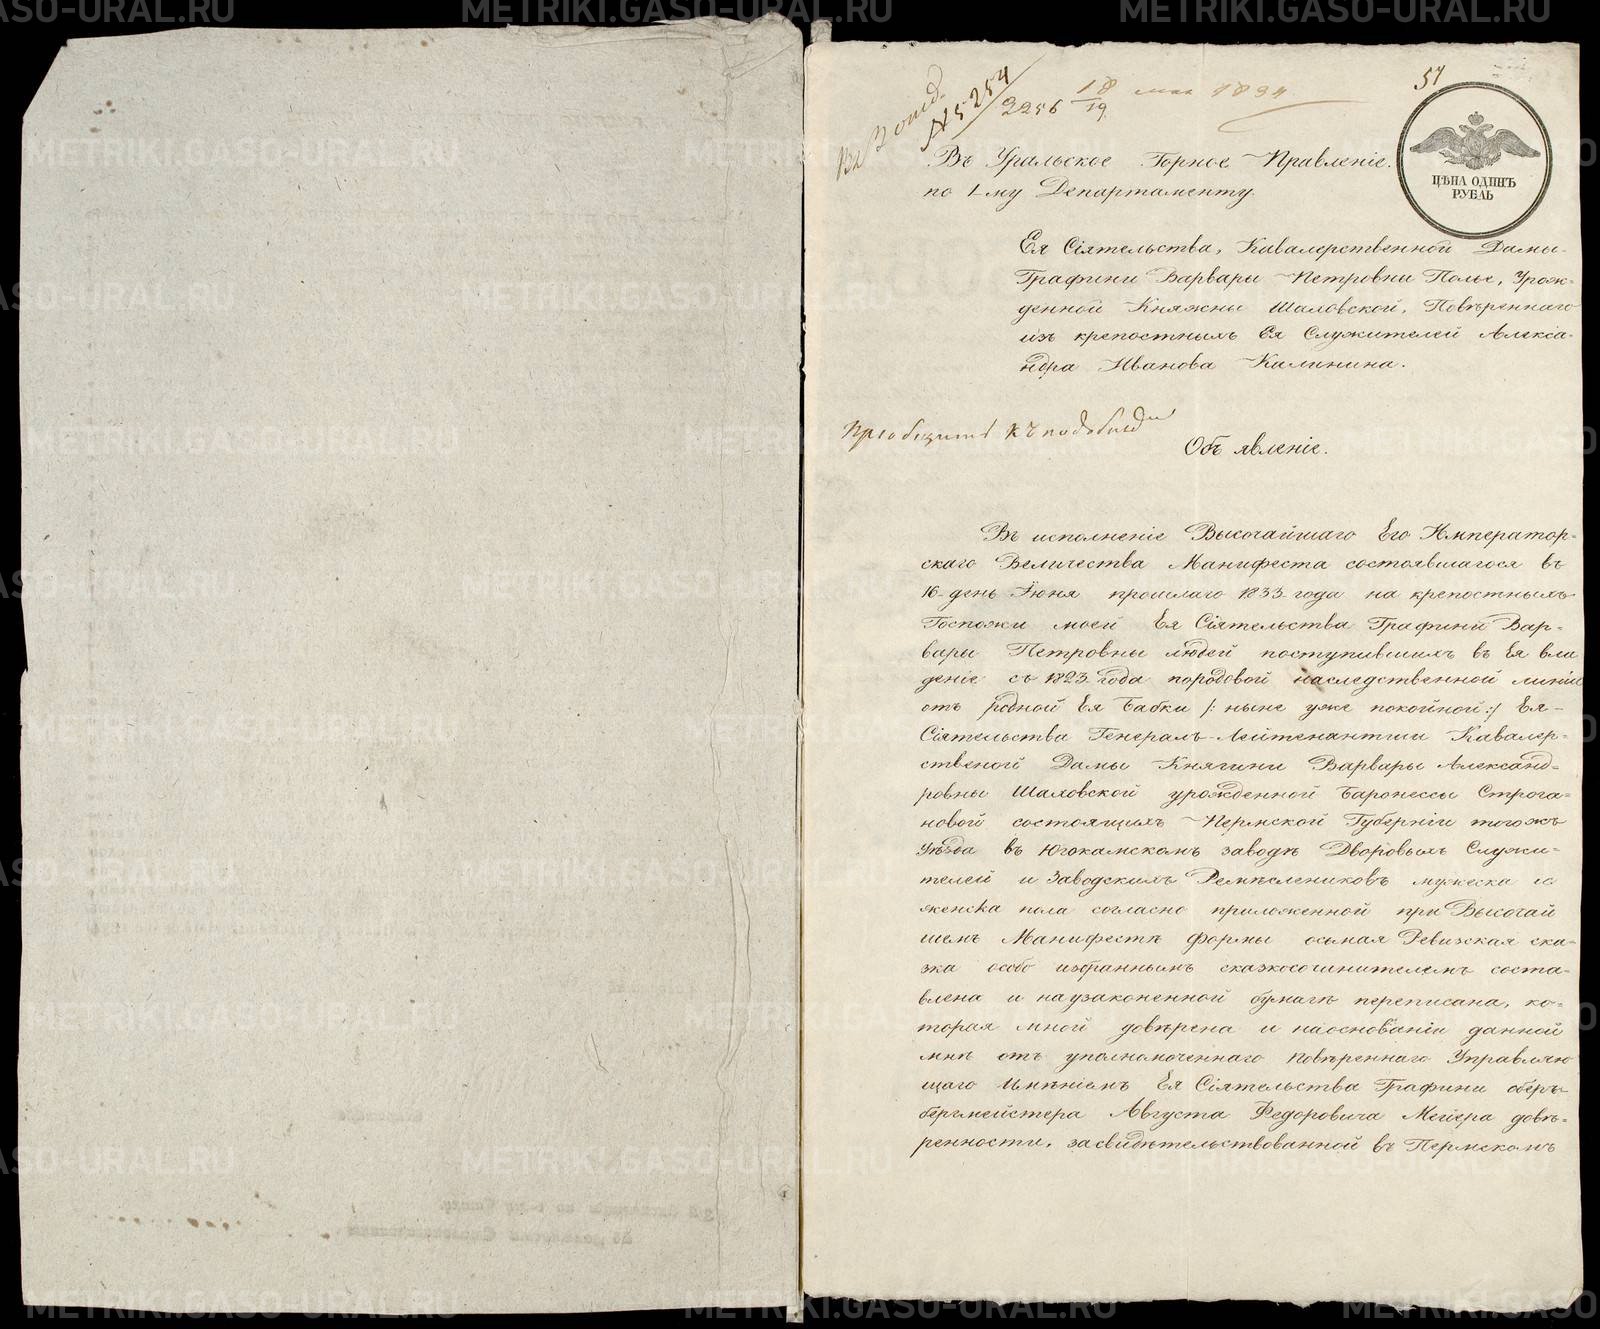 57
2256 18/19 мая 1834
№ 5254
Въ Уральское Горное Правленіе.
по 1-му Департаменту.
ЦѢНА ОДИНЪ
РУБЛЬ
Ея Сіятельства, Кавалерственной Дамы
Графини Варвары Петровны Полье, Урож-
денной Княжны Шаховской, Повѣреннаго
изъ крепостныхъ Ея Служителей Алекса-
ндра Иванова Калинина.
Объявленіе.
Въ исполненіе Высочайшаго Его Император-
скаго Величества Манифеста состоявшагося въ
16-день Іюня прошлаго 1833 года на крепостныхъ
Госпожи моей Ея Сіятельства Графини Вар-
вары Петровны людей поступившихъ въ Ея вла
деніе съ 1823 года породовой наследственной линіи
отъ родной Ея Бабки /: ныне уже покойной :/ Ея-
Сіятельства Генералъ-Лейтенантши Кавалер-
ственой Дамы Княгини Варвары Александ-
ровны Шаховской урожденной Баронессы Строга-
новой состоящихъ Пермской Губерніи тогожъ
Уѣзда въ Югокамскомъ заводѣ Дворовыхъ Служи-
телей и Заводскихъ Ремѣслениковъ мужеска и
женска пола согласно приложенной при Высочай
шемъ Манифестѣ формы осьмая Ревизская ска-
зка особо избраннымъ сказкосочинителемъ соста-
влена и наузаконенной бумагѣ переписана, ко-
торая мной довѣрена и наоснованіи данной
мнѣ отъ уполномоченнаго повѣреннаго Управляю
щаго Имѣніемъ Ея Сіятельства Графини оберъ-
бергмейстера Августа Федоровича Мейера довѣ-
ренности, засвидѣтельствованной въ Пермскомъ
METRIKI.GASO-URAL.RU